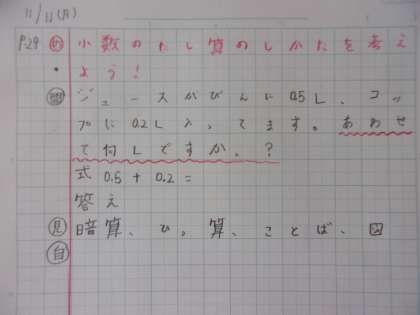 11/11(月)
P.29 め 小数のたし算のしかたを考え
・ よう!
問 ジュースがびんに0.5L、コッ
プに0.2L入ってます。あわせ
て何Lですか。?
式 0.5+0.2=
答え
見 暗算、ひっ算、ことば、図
自